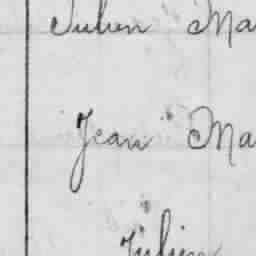 Julien Ma
Jean Ma
Julien